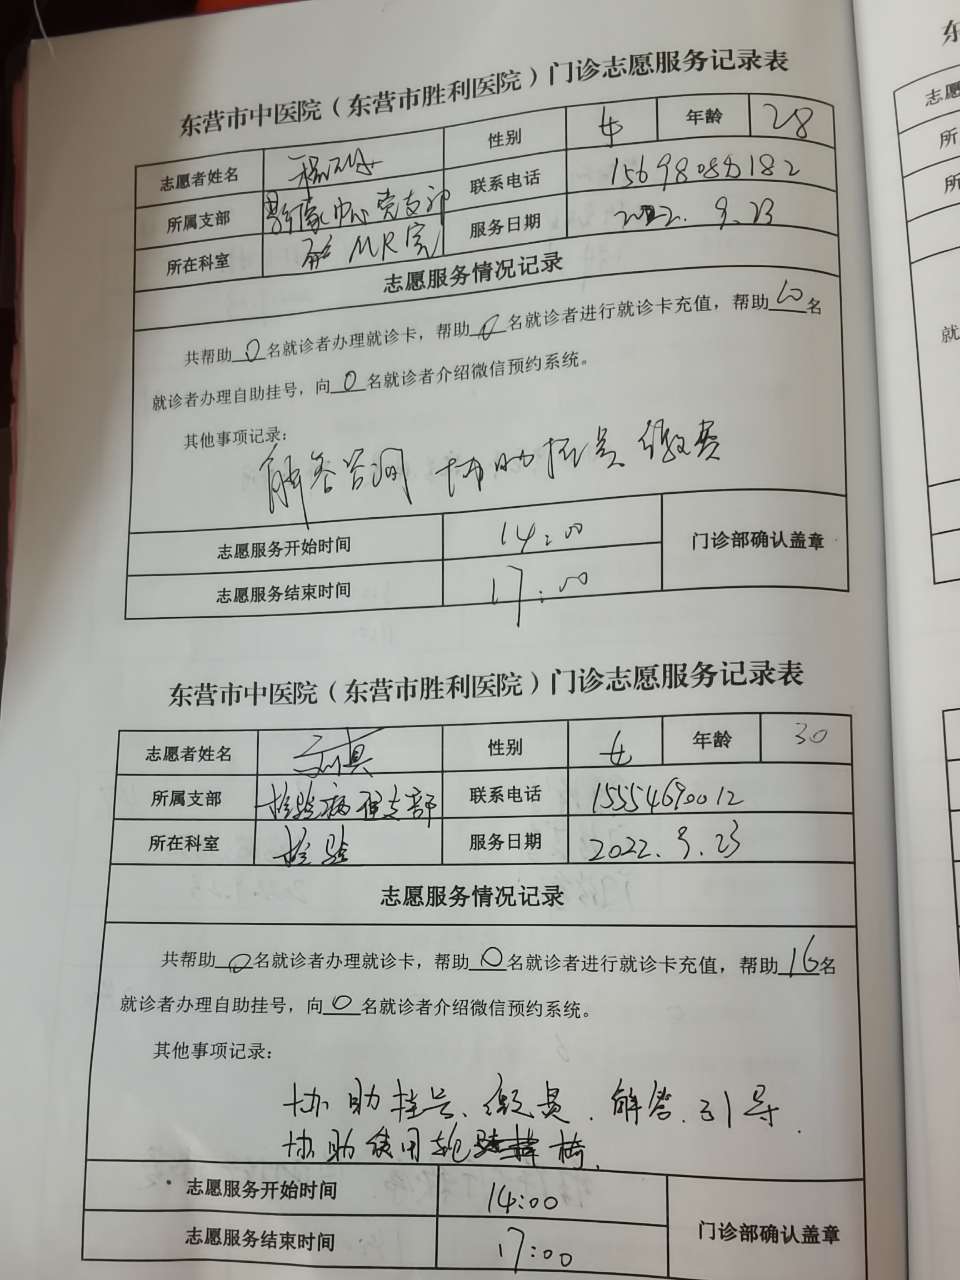 东营市中医院（东营市胜利医院）门诊志愿服务记录表
志愿者姓名 性别 女 年龄 28
所属支部 影像中心党支部 联系电话
所在科室 MR室 服务日期 2022.9.23
志愿服务情况记录
共帮助0名就诊者办理就诊卡，帮助0名就诊者进行就诊卡充值，帮助10名
就诊者办理自助挂号，向0名就诊者介绍微信预约系统。
其他事项记录：
解答咨询 协助挂号 缴费
志愿服务开始时间 14:00 门诊部确认盖章
志愿服务结束时间 17:00
东营市中医院（东营市胜利医院）门诊志愿服务记录表
志愿者姓名 性别 女 年龄 30
所属支部 检验病理支部 联系电话 15554690012
所在科室 检验 服务日期 2022.9.23
志愿服务情况记录
共帮助0名就诊者办理就诊卡，帮助0名就诊者进行就诊卡充值，帮助16名
就诊者办理自助挂号，向0名就诊者介绍微信预约系统。
其他事项记录：
协助挂号、缴费、解答、引导、
协助使用轮椅、
志愿服务开始时间 14:00 门诊部确认盖章
志愿服务结束时间 17:00